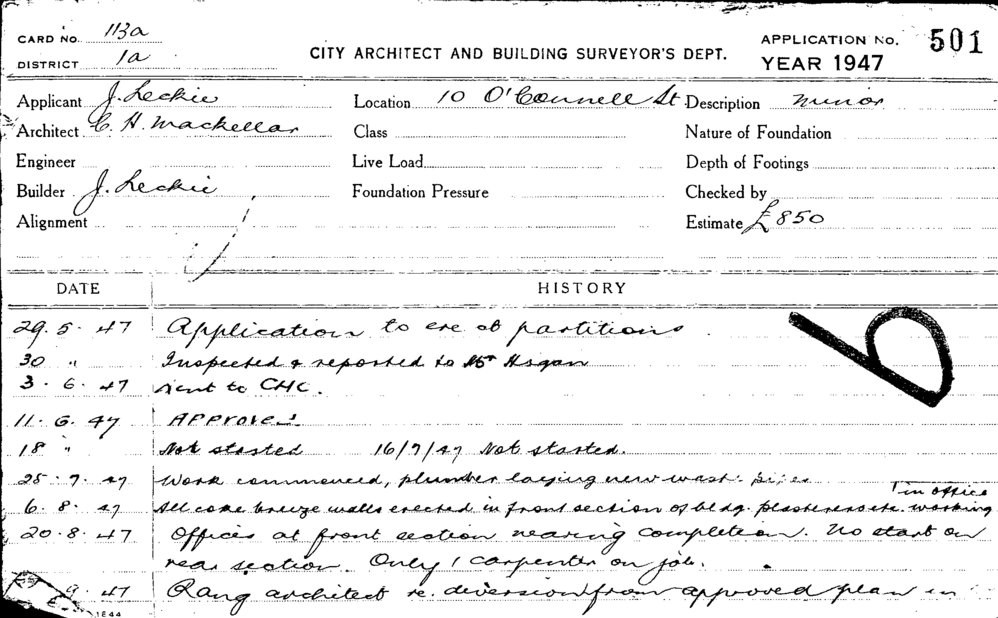 CARD NO. 113a
DISTRICT 1a
CITY ARCHITECT AND BUILDING SURVEYOR'S DEPT.
APPLICATION NO. 501
YEAR 1947
Applicant J. Leckie Location 10 O'Connell St Description minor
Architect C. H. Mackellar Class Nature of Foundation
Engineer Live Load Depth of Footings
Builder J. Leckie Foundation Pressure Checked by
Alignment Estimate £850
DATE HISTORY
29. 5. 47 Application to erect partitions.
30 " Inspected & reported to Mr Hogan
3. 6. 47 sent to CHC.
11. 6. 47 Approved
18 " Not started 16/7/47 Not started.
25. 7. 47 Work commenced, plumber laying new waste pipes
in office
6. 8. 47 All coke breeze walls erected in front section of bldg. plasterers etc. working
20. 8. 47 Offices at front section nearing completion. No start on
rear section. Only 1 carpenter on job.
9. 47 Rang architect re. diversion from approved plan in
1644